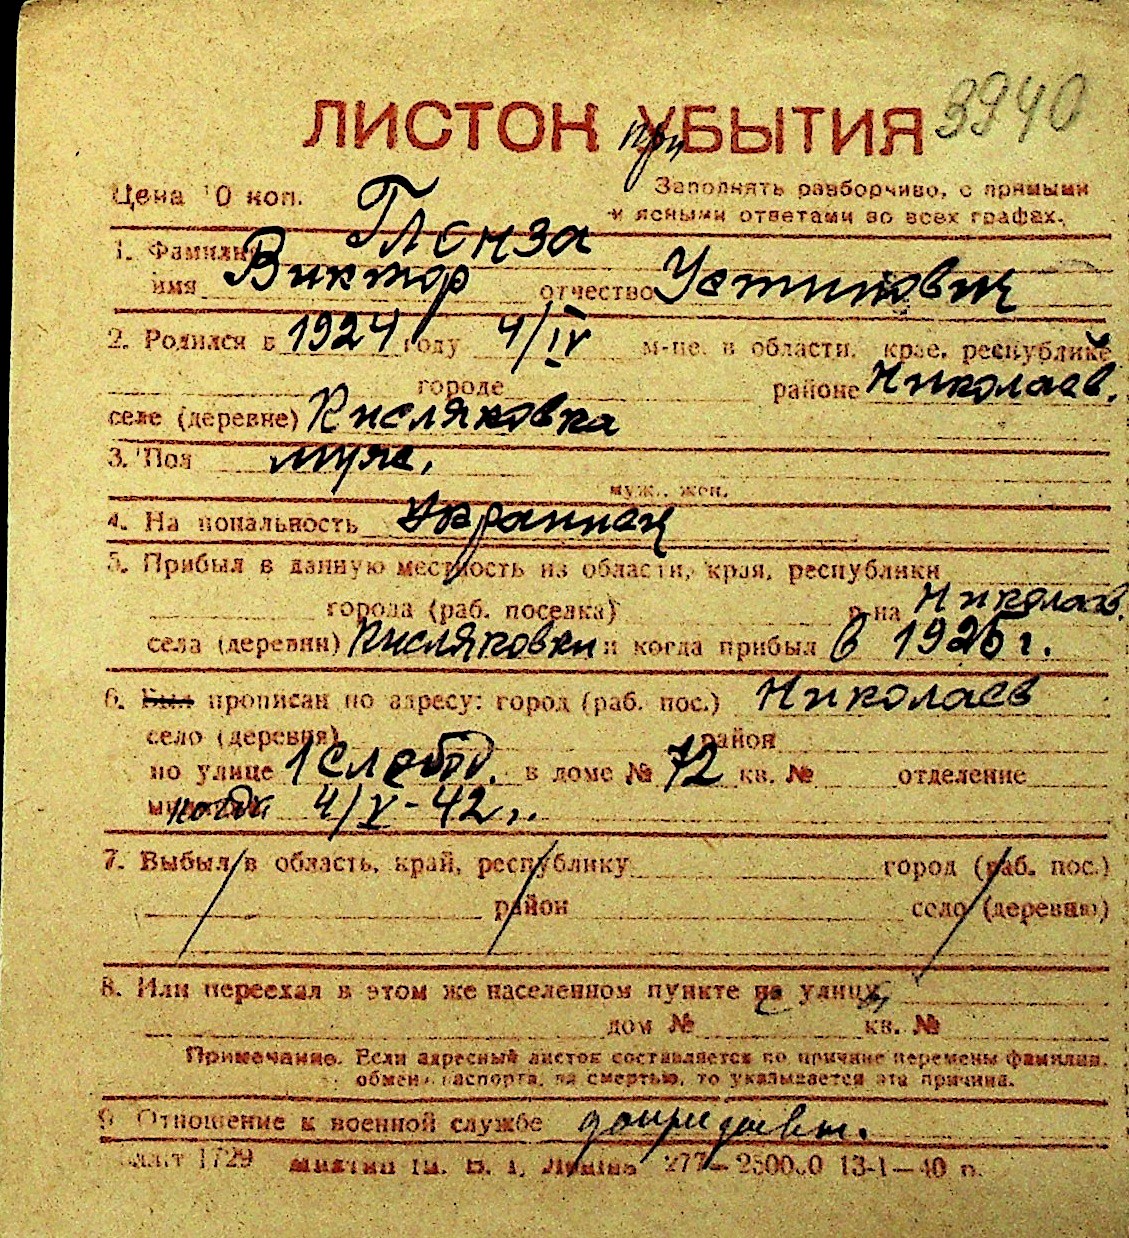 3940
ЛИСТОК при УБЫТИЯ
Цена 10 коп.
Заполнять разборчиво, с прямыми
и ясными ответами во всех графах.
1. Фамилия Глєнза
имя Виктор отчество Устинович
2. Родился в 1924 году 4/IV м-це. в области, крае, республике
городе районе Николаев.
селе (деревне) Кисляковка
3. Пол муж.
муж., жен.
4. Национальность Украинец
5. Прибыл в данную местность из области, края, республики
города (раб. поселка) р-на Николаев.
села (деревни) Кисляковки и когда прибыл в 1925 г.
6. Был прописан по адресу: город (раб. пос.) Николаев
село (деревня) район
по улице 1 Слобод. в доме № 72 кв. № отделение
когда 4/V-42 г.
7. Выбыл в область, край, республику город (раб. пос.)
район село (деревню)
8. Или переехал в этом же населенном пункте на улицу
дом № кв. №
Примечание. Если адресный листок составляется по причине перемены фамилии,
обмена паспорта, за смертью, то указывается эта причина.
9. Отношение к военной службе
1729 277—250000 13-1—40 г.